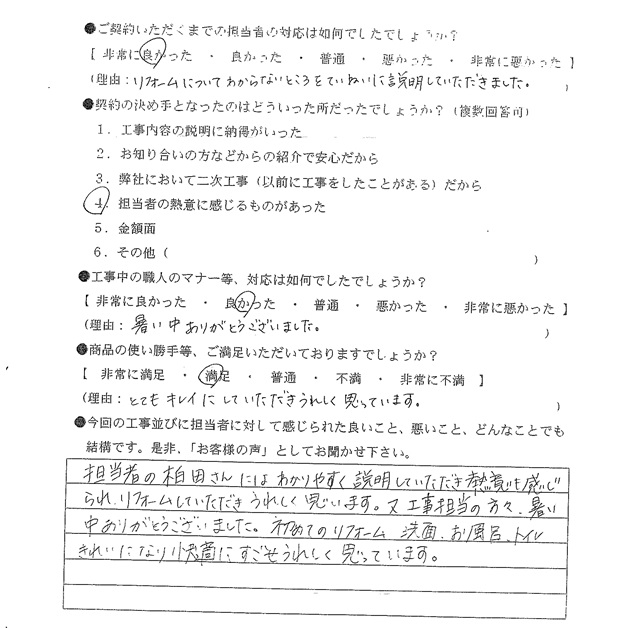 ●ご契約いただくまでの担当者の対応は如何でしたでしょうか？
[ 非常に良かった ・ 良かった ・ 普通 ・ 悪かった ・ 非常に悪かった ]
(理由：リフォームについてわからないところをていねいに説明していただきました。 )
●契約の決め手となったのはどういった所だったでしょうか？（複数回答可）
1．工事内容の説明に納得がいった
2．お知り合いの方などからの紹介で安心だから
3．弊社において二次工事（以前に工事をしたことがある）だから
4．担当者の熱意に感じるものがあった
5．金額面
6．その他（ ）
●工事中の職人のマナー等、対応は如何でしたでしょうか？
[ 非常に良かった ・ 良かった ・ 普通 ・ 悪かった ・ 非常に悪かった ]
(理由：暑い中ありがとうございました。 )
●商品の使い勝手等、ご満足いただいておりますでしょうか？
[ 非常に満足 ・ 満足 ・ 普通 ・ 不満 ・ 非常に不満 ]
(理由：とてもキレイにしていただきうれしく思っています。 )
●今回の工事並びに担当者に対して感じられた良いこと、悪いこと、どんなことでも
結構です。是非、「お客様の声」としてお聞かせ下さい。
担当者の柏田さんにはわかりやすく説明していただき熱意も感じ
られ、リフォームしていただきうれしく思います。又工事担当の方々、暑い
中ありがとうございました。初めてのリフォーム 洗面、お風呂、トイレ
きれいになり快適にすごせうれしく思っています。